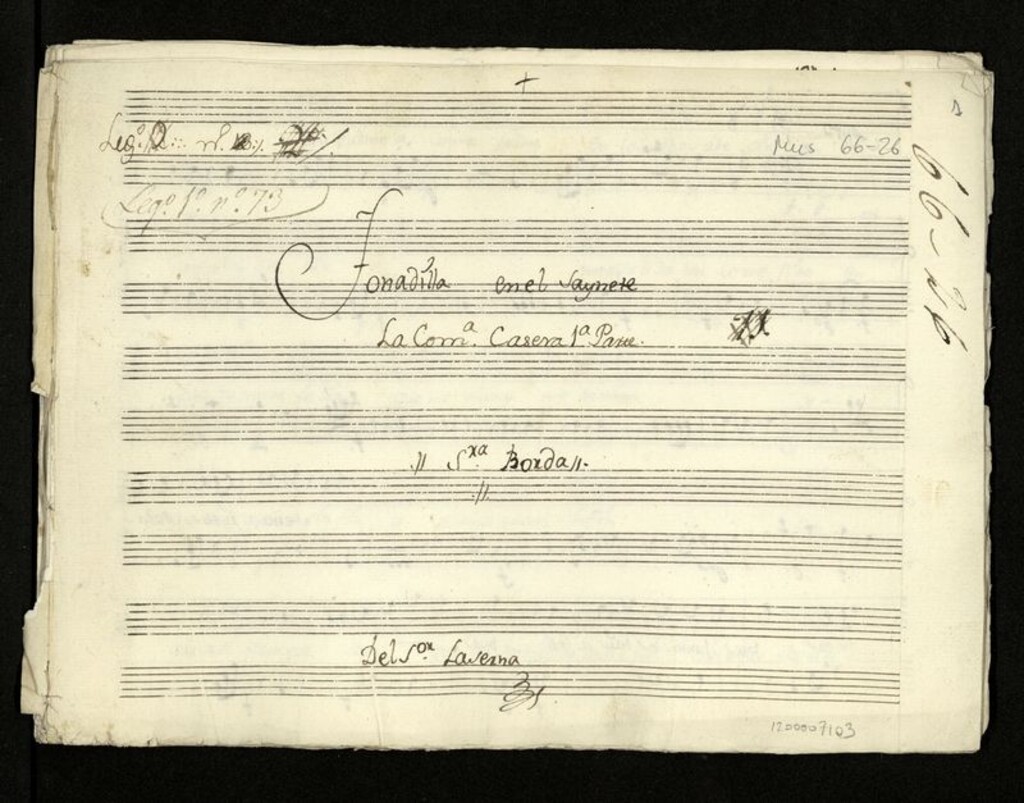 +
Legº 2 :: nº
Mus 66-26
Legº. 1º. nº. 73
66-26
Tonadilla en el Saynete
La Comª. Casera 1ª Parte.
// Sʳᵃ. Borda //.
.//.
Del Sᵒʳ. Laserna
1200007103